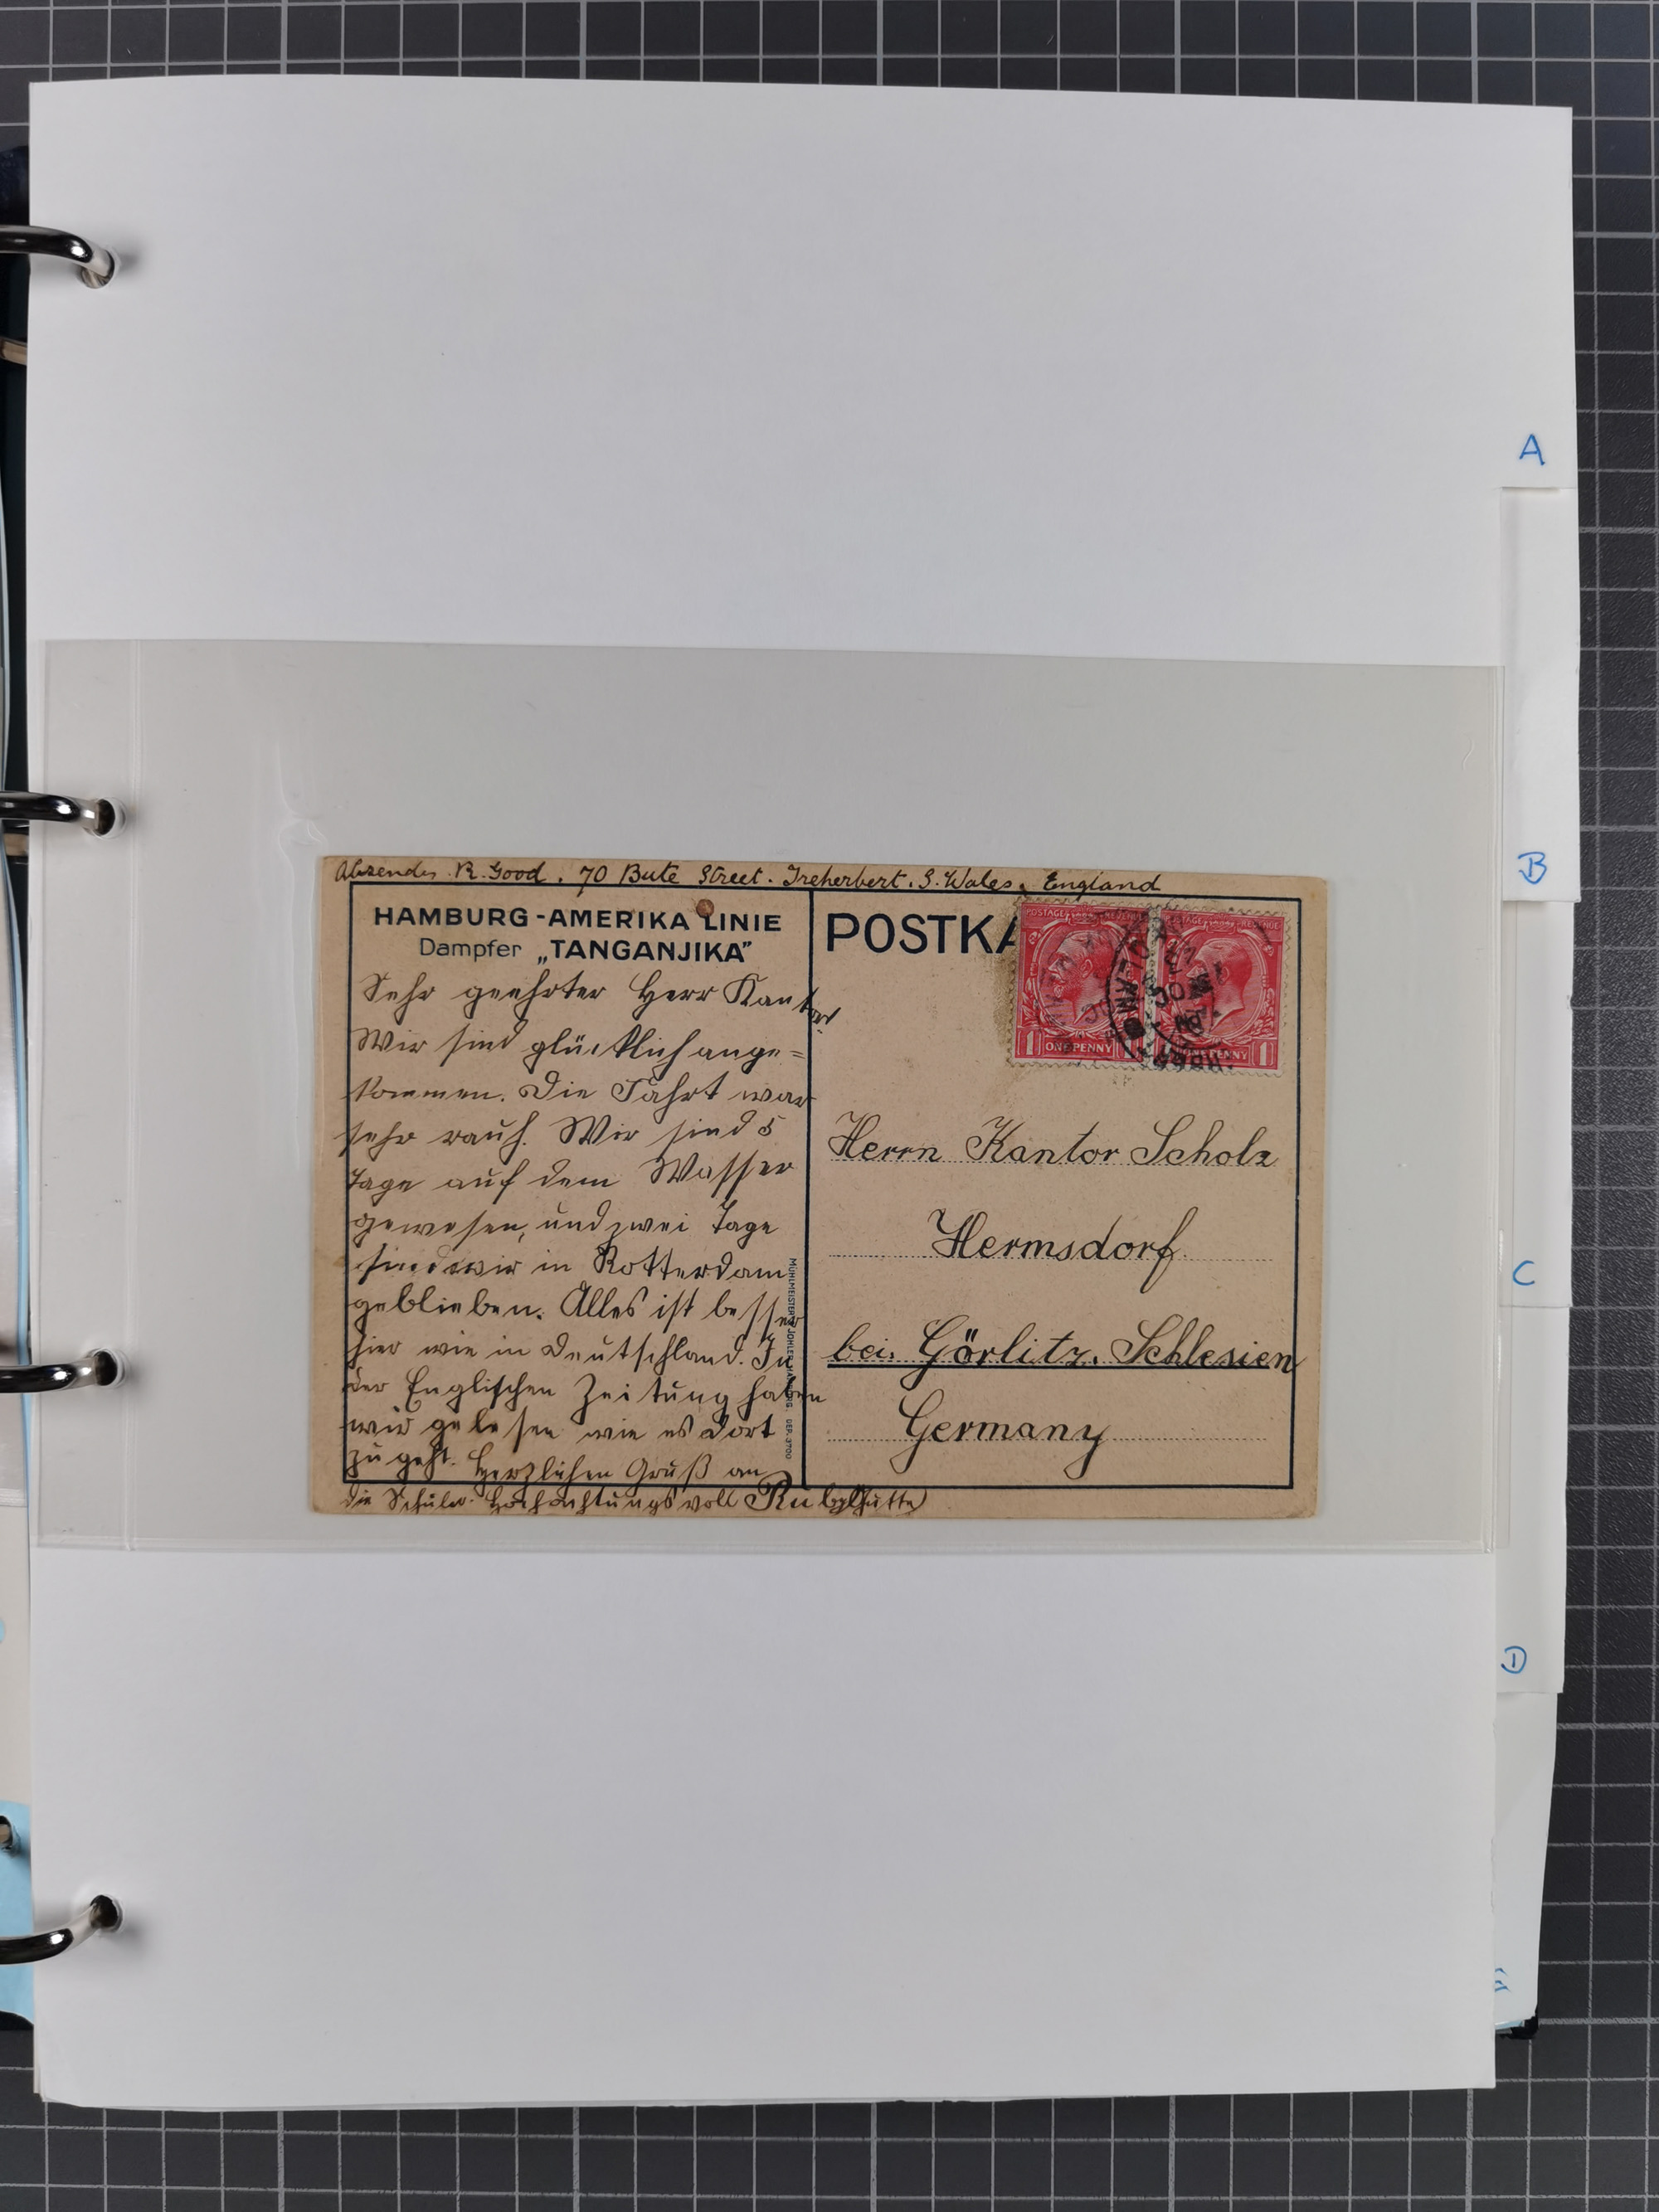 Absender R. Good. 70 Bute Street. Treherbert. S. Wales. England
HAMBURG-AMERIKA LINIE
Dampfer „TANGANJIKA”
POSTKA
POSTAGE REVENUE
POSTAGE REVENUE
1 ONE PENNY 1
ONE PENNY 1
Sehr geehrter Herr Kantor!
Wir sind glücklich ange=
kommen. Die Fahrt war
sehr rauh. Wir sind 5
Tage auf dem Wasser
gewesen, und zwei Tage
sind wir in Rotterdam
geblieben. Alles ist besser
hier wie in Deutschland. In
der Englischen Zeitung haben
wir gelesen wie es dort
zu geht. Herzlichen Gruß an
die Schüler. Hochachtungsvoll
MÜHLMEISTER & JOHLER, HAMBURG.
Herrn Kantor Scholz
Hermsdorf
bei Görlitz. Schlesien
Germany
A
B
C
D